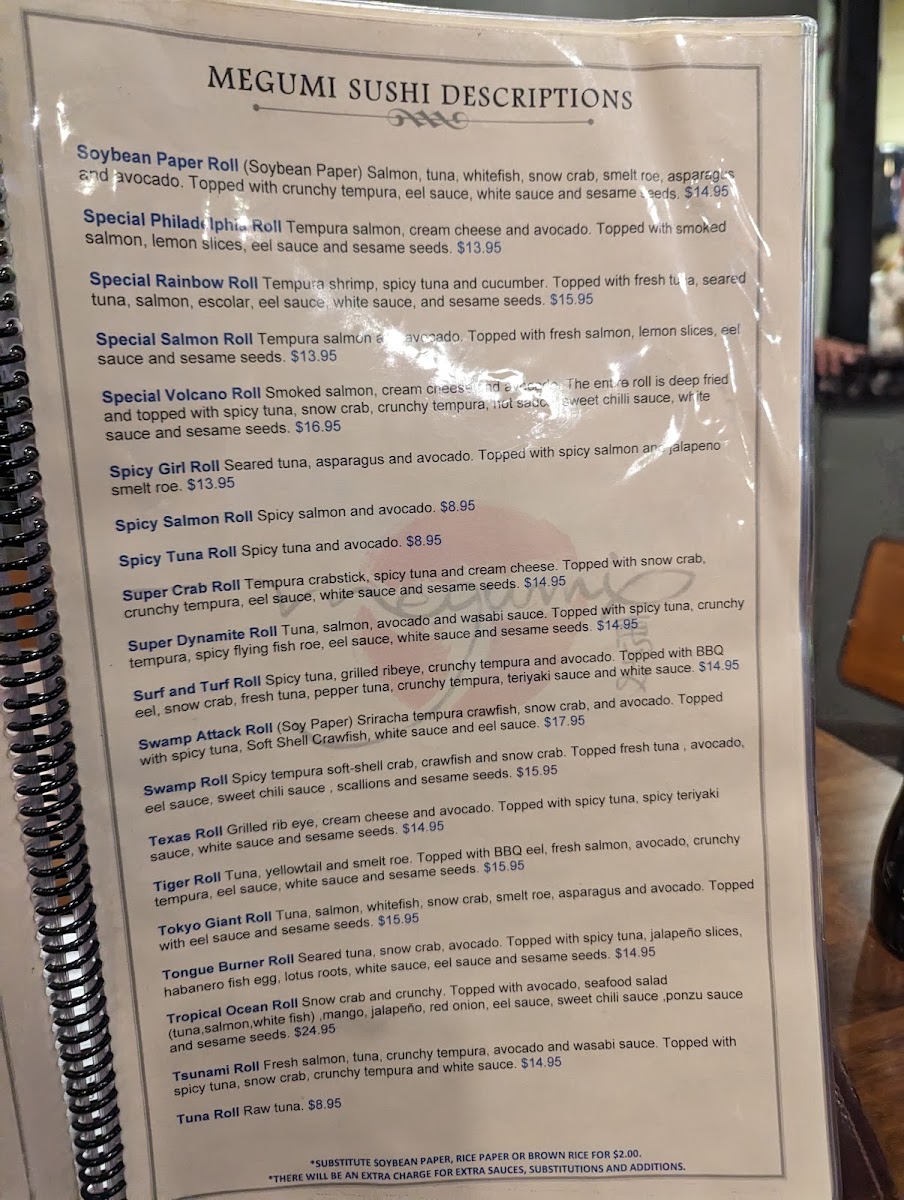 MEGUMI SUSHI DESCRIPTIONS
Soybean Paper Roll (Soybean Paper) Salmon, tuna, whitefish, snow crab, smelt roe, asparagus
and avocado. Topped with crunchy tempura, eel sauce, white sauce and sesame seeds. $14.95
Special Philadelphia Roll Tempura salmon, cream cheese and avocado. Topped with smoked
salmon, lemon slices, eel sauce and sesame seeds. $13.95
Special Rainbow Roll Tempura shrimp, spicy tuna and cucumber. Topped with fresh tuna, seared
tuna, salmon, escolar, eel sauce, white sauce, and sesame seeds. $15.95
Special Salmon Roll Tempura salmon and avocado. Topped with fresh salmon, lemon slices, eel
sauce and sesame seeds. $13.95
Special Volcano Roll Smoked salmon, cream cheese and avocado. The entire roll is deep fried
and topped with spicy tuna, snow crab, crunchy tempura, hot sauce, sweet chilli sauce, white
sauce and sesame seeds. $16.95
Spicy Girl Roll Seared tuna, asparagus and avocado. Topped with spicy salmon and jalapeno
smelt roe. $13.95
Spicy Salmon Roll Spicy salmon and avocado. $8.95
Spicy Tuna Roll Spicy tuna and avocado. $8.95
Super Crab Roll Tempura crabstick, spicy tuna and cream cheese. Topped with snow crab,
crunchy tempura, eel sauce, white sauce and sesame seeds. $14.95
Super Dynamite Roll Tuna, salmon, avocado and wasabi sauce. Topped with spicy tuna, crunchy
tempura, spicy flying fish roe, eel sauce, white sauce and sesame seeds. $14.95
Surf and Turf Roll Spicy tuna, grilled ribeye, crunchy tempura and avocado. Topped with BBQ
eel, snow crab, fresh tuna, pepper tuna, crunchy tempura, teriyaki sauce and white sauce. $14.95
Swamp Attack Roll (Soy Paper) Sriracha tempura crawfish, snow crab, and avocado. Topped
with spicy tuna, Soft Shell Crawfish, white sauce and eel sauce. $17.95
Swamp Roll Spicy tempura soft-shell crab, crawfish and snow crab. Topped fresh tuna , avocado,
eel sauce, sweet chili sauce , scallions and sesame seeds. $15.95
Texas Roll Grilled rib eye, cream cheese and avocado. Topped with spicy tuna, spicy teriyaki
sauce, white sauce and sesame seeds. $14.95
Tiger Roll Tuna, yellowtail and smelt roe. Topped with BBQ eel, fresh salmon, avocado, crunchy
tempura, eel sauce, white sauce and sesame seeds. $15.95
Tokyo Giant Roll Tuna, salmon, whitefish, snow crab, smelt roe, asparagus and avocado. Topped
with eel sauce and sesame seeds. $15.95
Tongue Burner Roll Seared tuna, snow crab, avocado. Topped with spicy tuna, jalapeño slices,
habanero fish egg, lotus roots, white sauce, eel sauce and sesame seeds. $14.95
Tropical Ocean Roll Snow crab and crunchy. Topped with avocado, seafood salad
(tuna,salmon,white fish) ,mango, jalapeño, red onion, eel sauce, sweet chili sauce ,ponzu sauce
and sesame seeds. $24.95
Tsunami Roll Fresh salmon, tuna, crunchy tempura, avocado and wasabi sauce. Topped with
spicy tuna, snow crab, crunchy tempura and white sauce. $14.95
Tuna Roll Raw tuna. $8.95
*SUBSTITUTE SOYBEAN PAPER, RICE PAPER OR BROWN RICE FOR $2.00.
*THERE WILL BE AN EXTRA CHARGE FOR EXTRA SAUCES, SUBSTITUTIONS AND ADDITIONS.